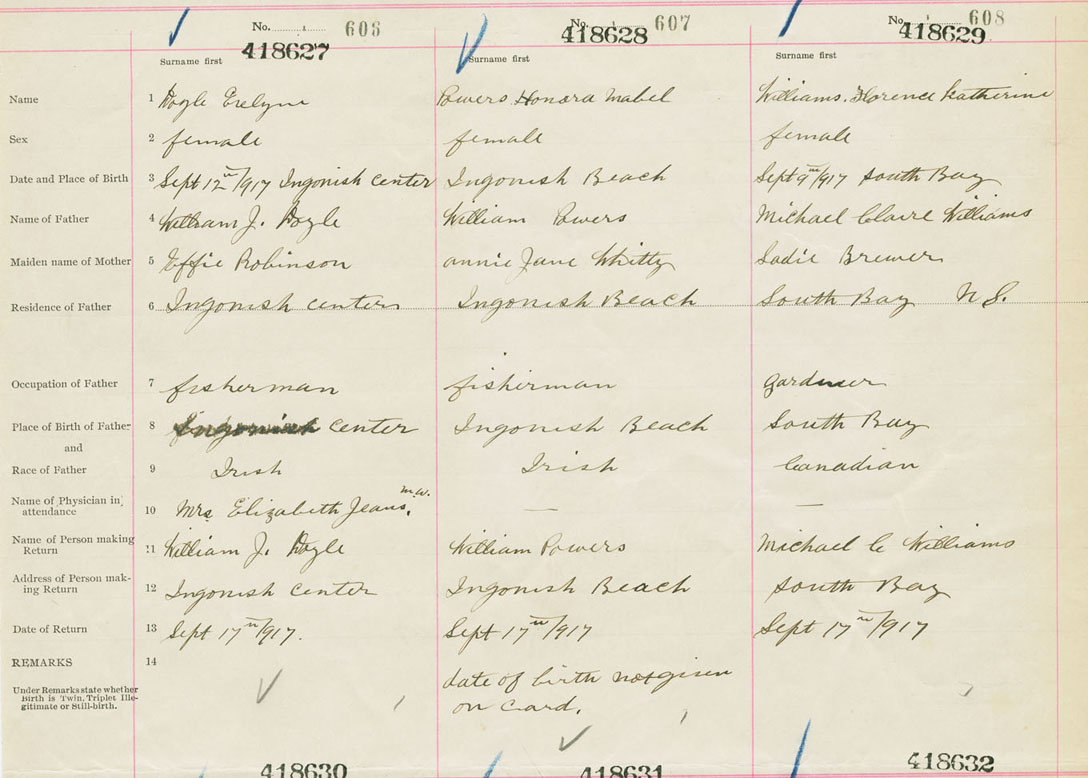 No. 606 No. 607 No. 608
418627 418628 418629
Surname first Surname first Surname first
Name 1 Doyle Evelyne Powers Honora Mabel Williams. Florence Katherine
Sex 2 female female female
Date and Place of Birth 3 Sept 12th/1917 Ingonish Center Ingonish Beach Sept 9th/1917 South Bay
Name of Father 4 William J. Doyle William Powers Michael Claire Williams
Maiden name of Mother 5 Effie Robinson Annie Jane Whitty Sadie Brewer
Residence of Father 6 Ingonish Center Ingonish Beach South Bay N S.
Occupation of Father 7 fisherman fisherman gardner
Place of Birth of Father 8 Ingonish Center Ingonish Beach South Bay
and
Race of Father 9 Irish Irish Canadian
Name of Physician in
attendance 10 Mrs Elizabeth Jeans, m.w. — —
Name of Person making
Return 11 William J. Doyle William Powers Michael C Williams
Address of Person mak-
ing Return 12 Ingonish Center Ingonish Beach South Bay
Date of Return 13 Sept 17th/1917. Sept 17th/1917 Sept 17th/1917
REMARKS 14 date of birth not given
Under Remarks state whether
Birth is Twin, Triplet Ille-
gitimate or Still-birth. on card.
418630 418631 418632